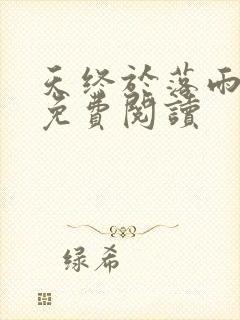 天终於落雨
免費閱讀
绿希